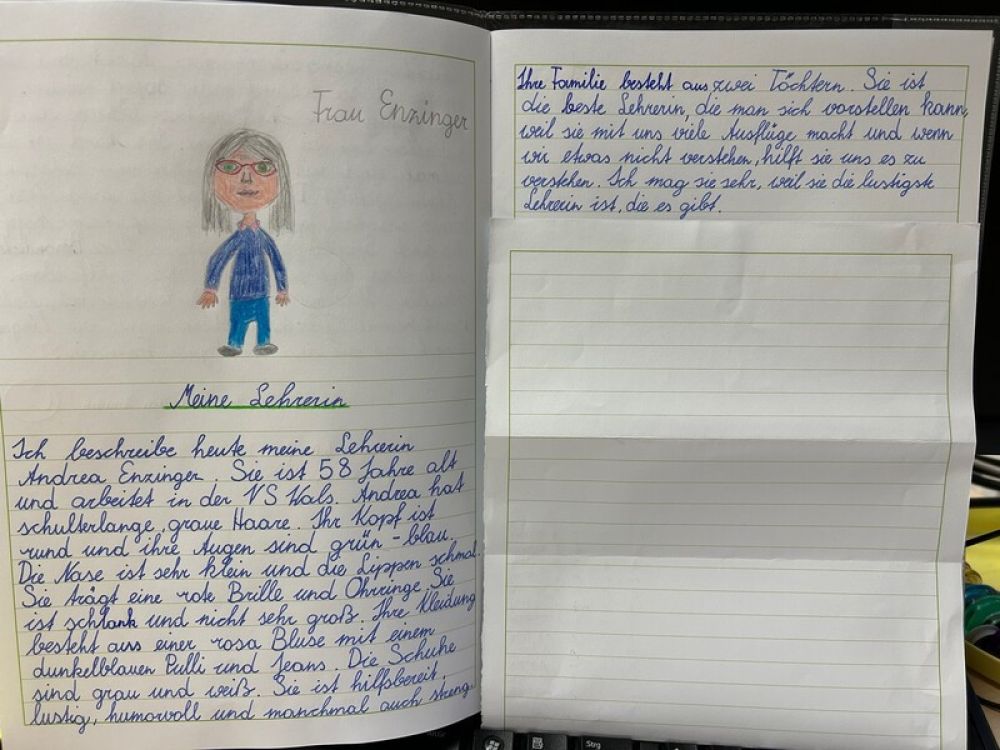 Frau Enzinger
Meine Lehrerin
Ich beschreibe heute meine Lehrerin
Andrea Enzinger. Sie ist 58 Jahre alt
und arbeitet in der VS Wals. Andrea hat
schulterlange, graue Haare. Ihr Kopf ist
rund und ihre Augen sind grün - blau.
Die Nase ist sehr klein und die Lippen schmal.
Sie trägt eine rote Brille und Ohrringe. Sie
ist schlank und nicht sehr groß. Ihre Kleidung
besteht aus einer rosa Bluse mit einem
dunkelblauen Pulli und Jeans. Die Schuhe
sind grau und weiß. Sie ist hilfsbereit,
lustig, humorvoll und manchmal auch streng.
Ihre Familie besteht aus zwei Töchtern. Sie ist
die beste Lehrerin, die man sich vorstellen kann,
weil sie mit uns viele Ausflüge macht und wenn
wir etwas nicht verstehen, hilft sie uns es zu
verstehen. Ich mag sie sehr, weil sie die lustigste
Lehrerin ist, die es gibt.
Strg